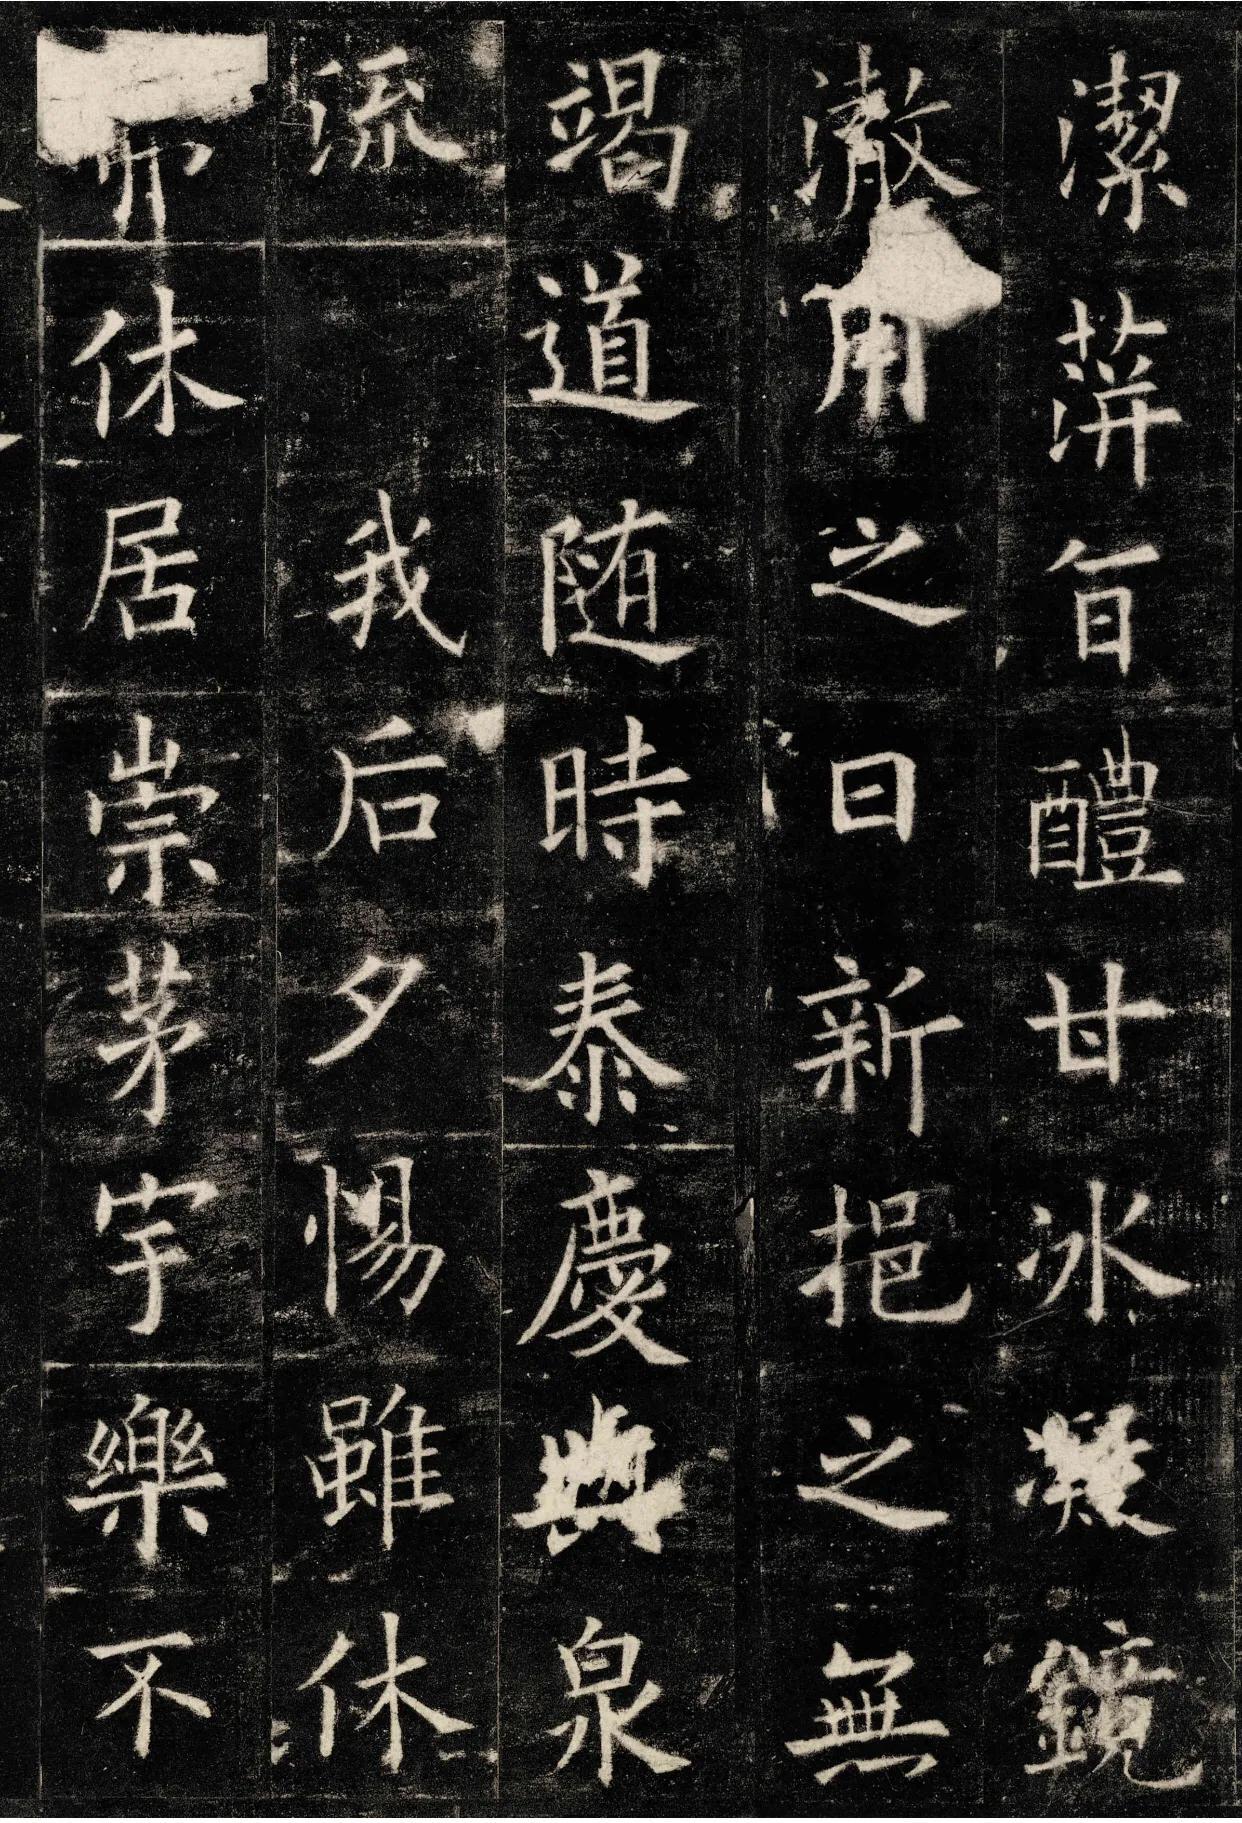 潔萍旨醴甘冰凝鏡
澈用之日新挹之無
竭道随時泰慶與泉
流 我后夕惕雖休
弗休居崇茅宇樂不